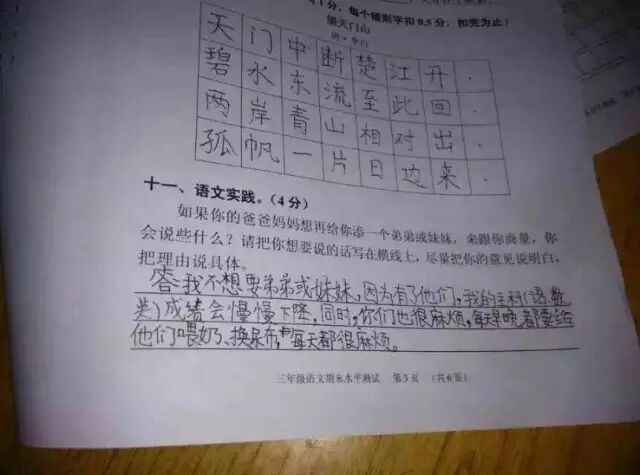 每个错别字扣0.5分，扣完为止）
望天门山
唐·李白
天门中断楚江开.
碧水东流至此回.
两岸青山相对出.
孤帆一片日边来.
十一、语文实践。（4分）
如果你的爸爸妈妈想再给你添一个弟弟或妹妹，来跟你商量，你
会说些什么？请把你想要说的话写在横线上，尽量把你的意见说明白，
把理由说具体。
答：我不想要弟弟或妹妹，因为有了他们，我的主科（语、数
英）成绩会慢慢下降，同时，你们也很麻烦，每天早晚都要给
他们喂奶、换尿布，每天都很麻烦。
三年级语文期末水平测试 第3页 （共6页）